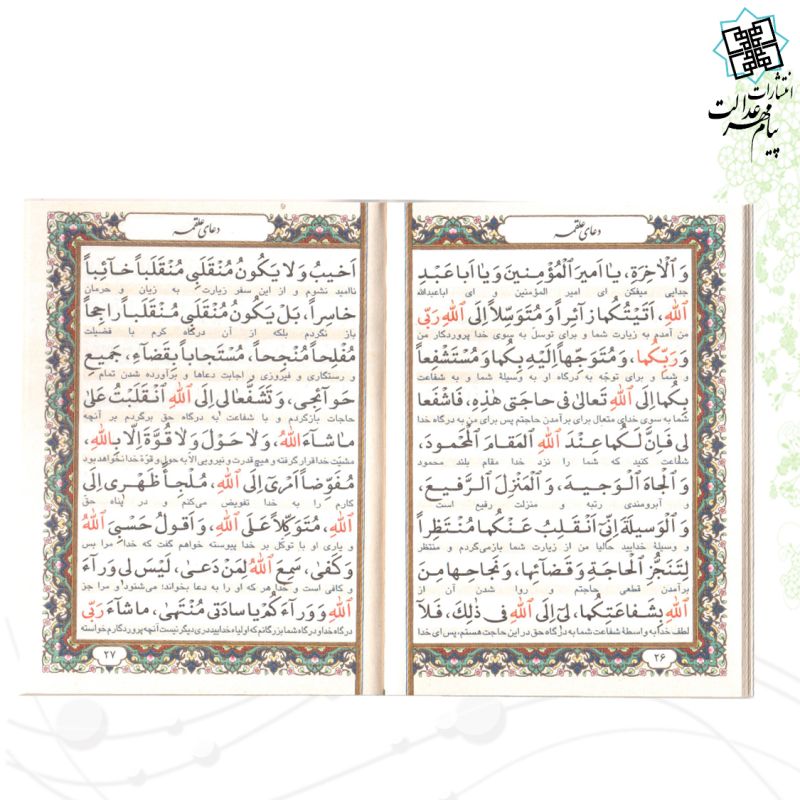 انتشارات
پیام مهر عدالت
دعای علقمه
وَ الْاٰخِرَةِ، یٰا اَمیرَ الْمُؤْمِنینَ وَ یٰا اَبا عَبْدِ
جدایی میفکن ای امیر المؤمنین و ای اباعبدالله
اللهِ، اَتَیْتُکُما زٰآئِراً وَ مُتَوَسِّلاً اِلَی اللهِ رَبّی
من آمدم به زیارت شما و برای توسل به سوی خدا پروردگار من
وَ رَبِّکُمٰا، وَ مُتَوَجِّهاً اِلَیْهِ بِکُما وَ مُسْتَشْفِعاً
و شما و برای توجّه به درگاه او به وسیلهٔ شما و به شفاعت
بِکُما اِلَی اللهِ تَعالیٰ فی حاجَتی هٰذِهِ، فَاشْفَعا
شما به سوی خدای متعال برای برآمدن حاجتم پس برای من به درگاه خدا
لی فَاِنَّ لَکُما عِنْدَ اللهِ الْمَقامَ الْمَحْمُودَ،
شفاعت کنید که شما را نزد خدا مقام بلند محمود
وَ الْجاهَ الْوَجیهَ، وَ الْمَنْزِلَ الرَّفیعَ،
و آبرومندی رتبه و منزلت رفیع است
وَ الْوَسیلَةَ اِنّی اَنْقَلِبُ عَنْکُما مُنْتَظِراً
و وسیلهٔ خدایید حالیا من از زیارت شما بازمی‌گردم و منتظر
لِتَنَجُّزِ الْحاجَةِ وَ قَضآئِها، وَ نَجاحِها مِنَ
برآمدن قطعی حاجتم و روا شدن آن از
اللهِ بِشَفاعَتِکُما، لی اِلَی اللهِ فی ذٰلِکَ، فَلاٰ
لطف خدا به واسطهٔ شفاعت شما به درگاه حق در این حاجت هستم، پس ای خدا
۲۶
دعای علقمه
اَخیبُ وَ لا یَکُونُ مُنْقَلَبی مُنْقَلَباً خآئِباً
ناامید نشوم و از این سفر زیارت به زیان و حرمان
خاسِراً، بَلْ یَکُونُ مُنْقَلَبی مُنْقَلَباً راجِحاً
باز نگردم بلکه از آن درگاه کرم با فضیلت
مُفْلِحاً مُنْجِحاً، مُسْتَجاباً بِقَضآءِ، جَمیعِ
و رستگاری و فیروزی و اجابت دعاها و برآورده شدن تمام
حَوآئِجی، وَ تَشَفَّعا لی اِلَی اللهِ انْقَلَبْتُ عَلیٰ
حاجات بازگردم و با شفاعت به درگاه حق برگردم بر آنچه
ما شآءَ اللهُ، وَ لا حَوْلَ وَ لا قُوَّةَ اِلّا بِاللهِ،
مشیّت خدا قرار گرفته و هیچ قدرت و نیرویی الا به حول و قوّهٔ خدا نخواهد بود
مُفَوِّضاً اَمْری اِلَی اللهِ، مُلْجِأً ظَهْری اِلَی
کارم را به خدا تفویض می‌کنم و در پناه حق
اللهِ، مُتَوَکِّلاً عَلَی اللهِ، وَ اَقُولُ حَسْبِیَ اللهُ
و یاری او با توکل بر خدا پیوسته خواهم گفت که خدا مرا بس
وَ کَفیٰ، سَمِعَ اللهُ لِمَنْ دَعیٰ، لَیْسَ لی وَرآءَ
و کافی است و خدا هر که او را به دعا بخواند؛ می‌شنود و مرا جز
اللهِ وَ وَرآءَکُمْ یا سادَتی مُنْتَهیٰ، ما شآءَ رَبّی
درگاه خدا و درگاه شما بزرگانم که اولیاء خدایید دری دیگر نیست آنچه پروردگارم خواسته
۲۷